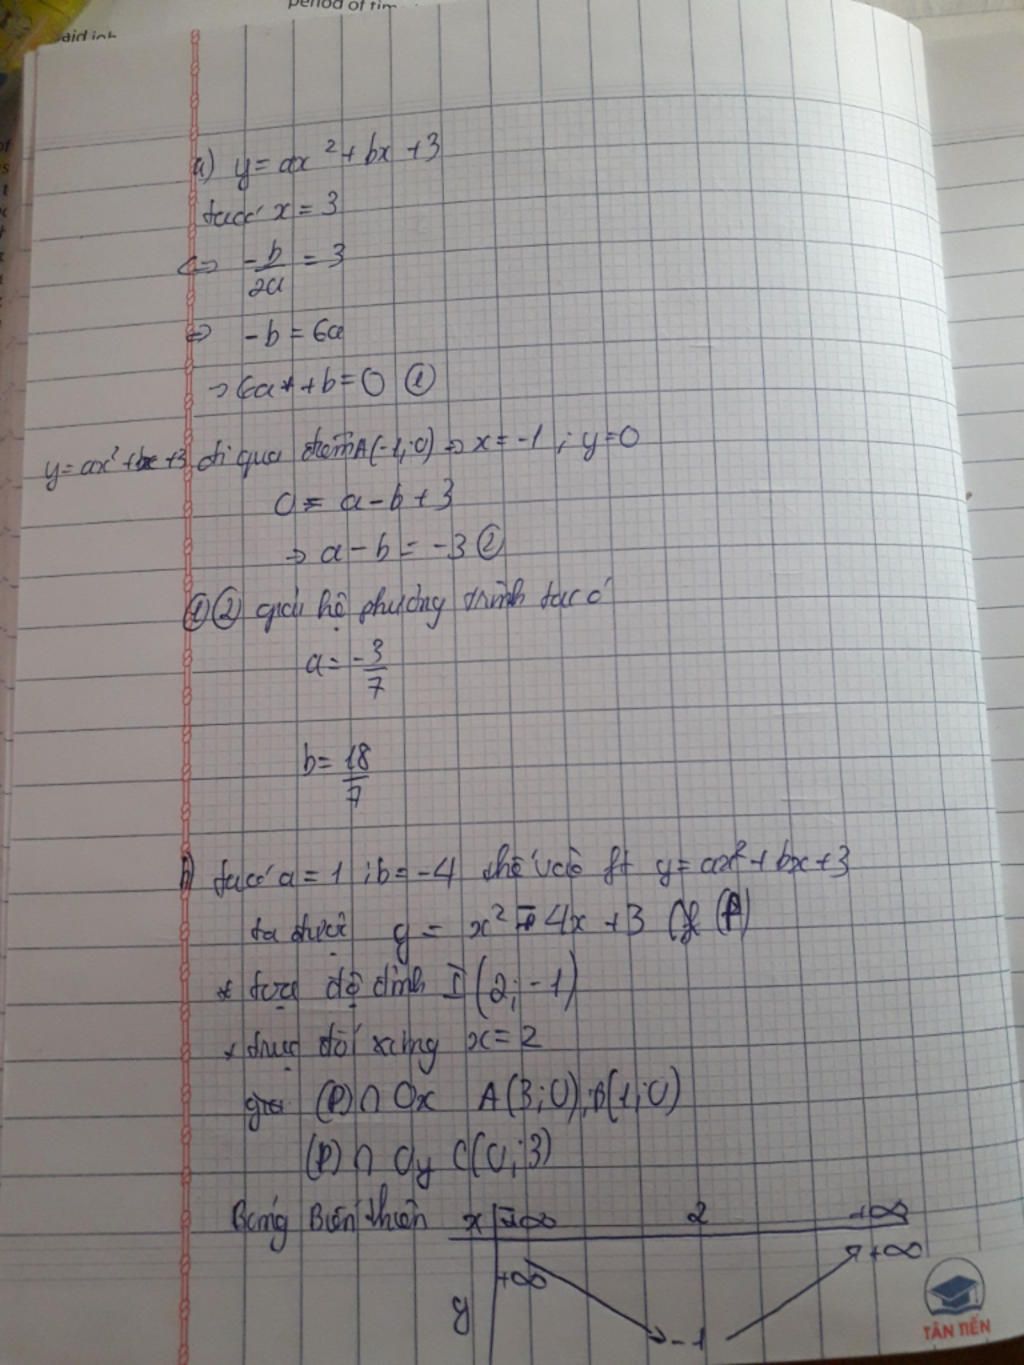 period of tim
aid job
a) y = ax² + bx + 3
ta có x = 3
<=> -b/2a = 3
<=> -b = 6a
-> 6a + b = 0 ①
y = ax² + bx + 3 đi qua điểm A(-1;0) => x = -1 ; y = 0
0 = a - b + 3
=> a - b = -3 ②
①② giải hệ phương trình ta có
a = -3/7
b = 18/7
b) ta có a = 1 ; b = -4 thế vào ft y = ax² + bx + 3
ta được y = x² - 4x + 3 (P)
* toạ độ đỉnh I (2; -1)
* trục đối xứng x = 2
(P) ∩ Ox A(3;0), B(1;0)
(P) ∩ Oy C(0;3)
Bảng Biến thiên x -∞ 2 +∞
+∞ +∞
y -1
TÂN TIẾN